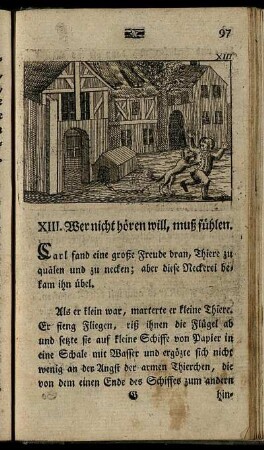 97
XIII
XIII. Wer nicht hören will, muß fühlen.
Carl fand eine große Freude dran, Thiere zu
quälen und zu necken; aber diese Neckerei be-
kam ihn übel.
Als er klein war, marterte er kleine Thiere.
Er fieng Fliegen, riß ihnen die Flügel ab
und setzte sie auf kleine Schiffe von Papier in
eine Schale mit Wasser und ergözte sich nicht
wenig an der Angst der armen Thierchen, die
von dem einen Ende des Schiffes zum andern
G hin-